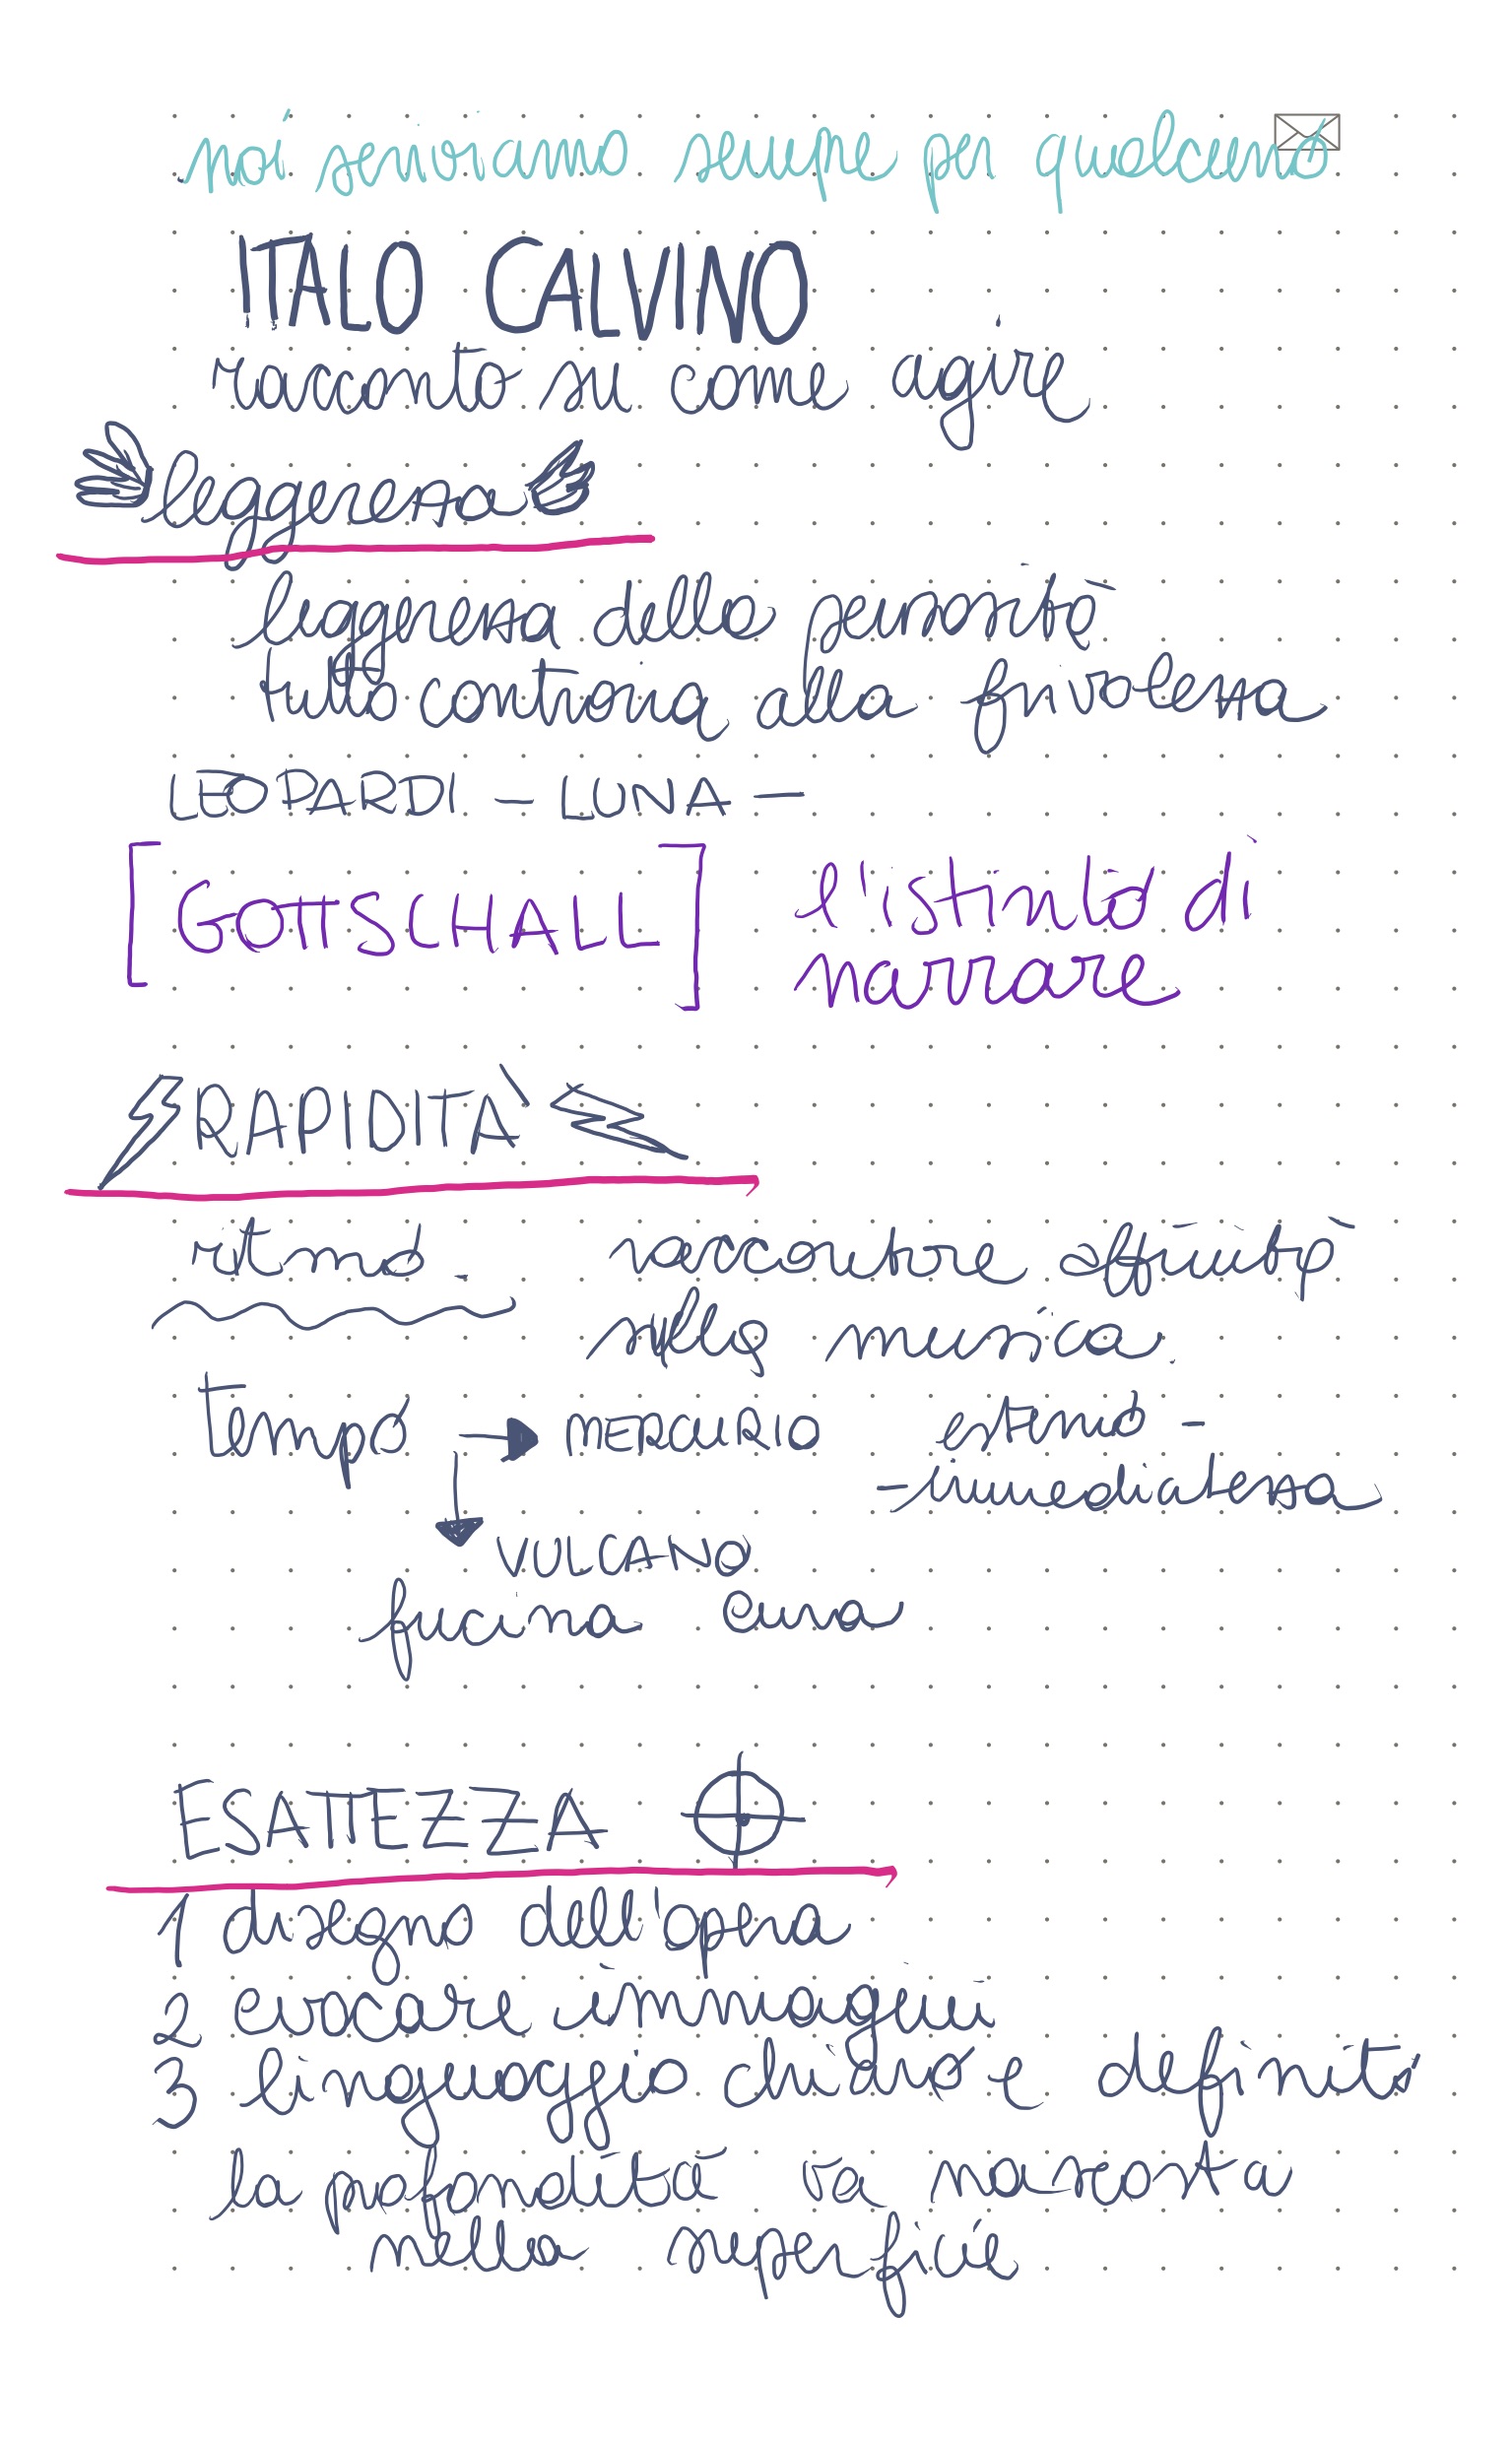 noi scriviamo sempre per qualcuno
ITALO CALVINO
racconto su come agire
leggerezza
leggerezza della pensosità
tutto contraria alla frivolezza
LEOPARDI - LUNA -
[GOTTSCHALL] l'istinto di
narrare
RAPIDITÀ
ritmo raccontare affinità
nella musica
tempo → MERCURIO esterno -
- immediatezza
VULCANO
fucina cura
ESATTEZZA
1 disegno dell'opera
2 evocare immagini
3 linguaggio chiaro e definito
la profondità va nascosta
nella superficie